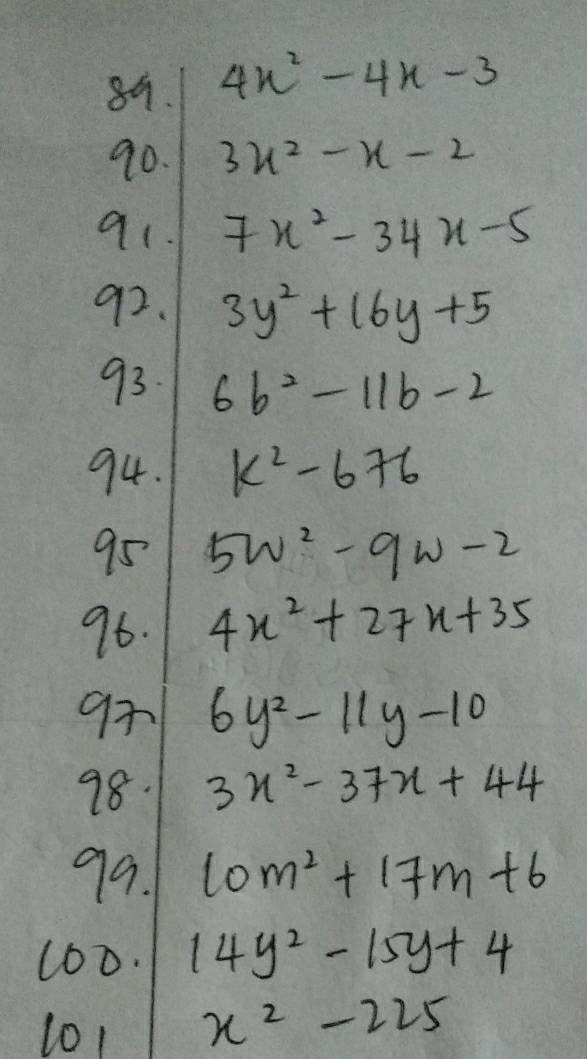 89. 4x² - 4x - 3
90. 3x² - x - 2
91. 7x² - 34x - 5
92. 3y² + 16y + 5
93. 6b² - 11b - 2
94. k² - 676
95 5w² - 9w - 2
96. 4x² + 27x + 35
97 6y² - 11y - 10
98. 3x² - 37x + 44
99. 10m² + 17m + 6
100. 14y² - 15y + 4
101 x² - 225